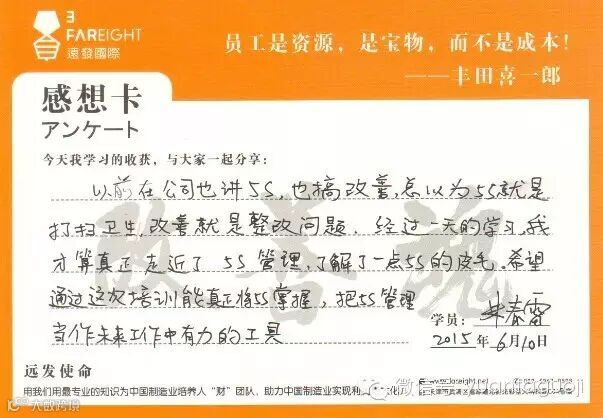 3
FAREIGHT
远發國際
员工是资源，是宝物，而不是成本！
——丰田喜一郎
感想卡
アンケート
今天我学习的收获，与大家一起分享：
以前在公司也讲5S，也搞改善，总以为5S就是
打扫卫生，改善就是整改问题. 经过一天的学习，我
才算真正走近了 5S 管理，了解了一点5S的皮毛。希望
通过这次培训能真正将5S掌握，把5S管理
当作未来工作中有力的工具
改善魂
学员：
2015年6月10日
远发使命
用我们用最专业的知识为中国制造业培养人“财”团队，助力中国制造业实现
www.fareight.net
微信号
大数跨境